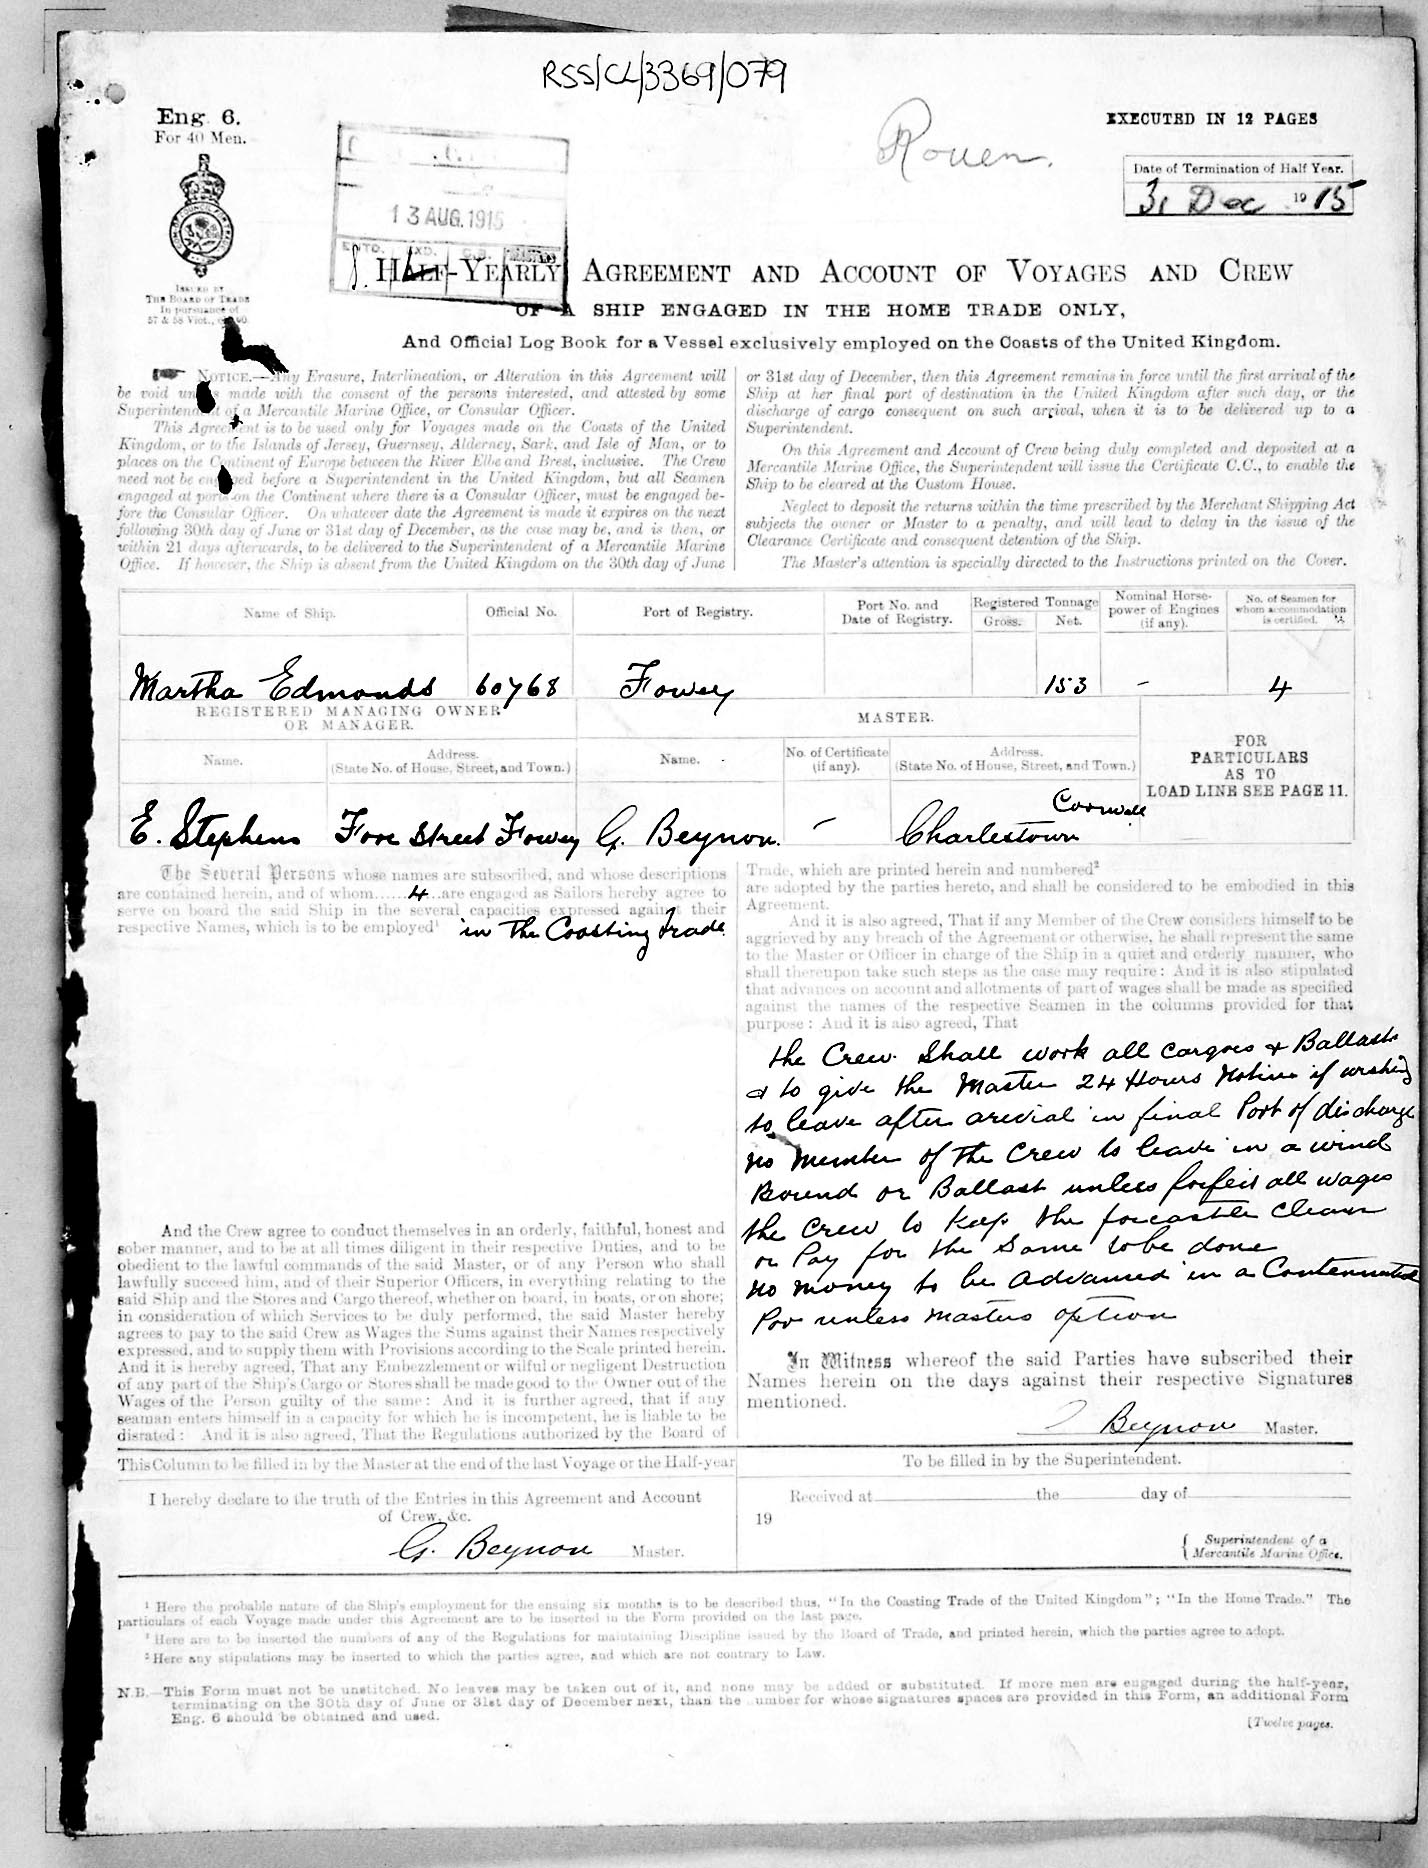 RSS/CL/3369/079
Eng 6.
For 40 Men.
Rouen.
EXECUTED IN 12 PAGES
Date of Termination of Half Year.
31 Dec 1915
13 AUG. 1915
ISSUED BY
THE BOARD OF TRADE
In pursuance of
57 & 58 Vict.,
HALF-YEARLY AGREEMENT AND ACCOUNT OF VOYAGES AND CREW
OF A SHIP ENGAGED IN THE HOME TRADE ONLY,
And Official Log Book for a Vessel exclusively employed on the Coasts of the United Kingdom.
NOTICE.—Any Erasure, Interlineation, or Alteration in this Agreement will
be void unless made with the consent of the persons interested, and attested by some
Superintendent of a Mercantile Marine Office, or Consular Officer.
This Agreement is to be used only for Voyages made on the Coasts of the United
Kingdom, or to the Islands of Jersey, Guernsey, Alderney, Sark, and Isle of Man, or to
places on the Continent of Europe between the River Elbe and Brest, inclusive. The Crew
need not be engaged before a Superintendent in the United Kingdom, but all Seamen
engaged at ports on the Continent where there is a Consular Officer, must be engaged be-
fore the Consular Officer. On whatever date the Agreement is made it expires on the next
following 30th day of June or 31st day of December, as the case may be, and is then, or
within 21 days afterwards, to be delivered to the Superintendent of a Mercantile Marine
Office. If however, the Ship is absent from the United Kingdom on the 30th day of June
or 31st day of December, then this Agreement remains in force until the first arrival of the
Ship at her final port of destination in the United Kingdom after such day, or the
discharge of cargo consequent on such arrival, when it is to be delivered up to a
Superintendent.
On this Agreement and Account of Crew being duly completed and deposited at a
Mercantile Marine Office, the Superintendent will issue the Certificate C.C., to enable the
Ship to be cleared at the Custom House.
Neglect to deposit the returns within the time prescribed by the Merchant Shipping Act
subjects the owner or Master to a penalty, and will lead to delay in the issue of the
Clearance Certificate and consequent detention of the Ship.
The Master's attention is specially directed to the Instructions printed on the Cover.
Name of Ship. Official No. Port of Registry. Port No. and Date of Registry. Registered Tonnage Gross. Net. Nominal Horse-power of Engines (if any). No. of Seamen for whom accommodation is certified.
Martha Edmonds 60768 Fowey 153 - 4
REGISTERED MANAGING OWNER
OR MANAGER.
MASTER.
FOR
PARTICULARS
AS TO
LOAD LINE SEE PAGE 11.
Name. Address. (State No. of House, Street, and Town.) Name. No. of Certificate (if any). Address. (State No. of House, Street, and Town.)
E. Stephens Fore Street Fowey G. Beynon. - Charlestown Cornwall
The Several Persons whose names are subscribed, and whose descriptions
are contained herein, and of whom......4...are engaged as Sailors hereby agree to
serve on board the said Ship in the several capacities expressed against their
respective Names, which is to be employed¹ in The Coasting Trade
And the Crew agree to conduct themselves in an orderly, faithful, honest and
sober manner, and to be at all times diligent in their respective Duties, and to be
obedient to the lawful commands of the said Master, or of any Person who shall
lawfully succeed him, and of their Superior Officers, in everything relating to the
said Ship and the Stores and Cargo thereof, whether on board, in boats, or on shore;
in consideration of which Services to be duly performed, the said Master hereby
agrees to pay to the said Crew as Wages the Sums against their Names respectively
expressed, and to supply them with Provisions according to the Scale printed herein.
And it is hereby agreed, That any Embezzlement or wilful or negligent Destruction
of any part of the Ship's Cargo or Stores shall be made good to the Owner out of the
Wages of the Person guilty of the same: And it is further agreed, that if any
seaman enters himself in a capacity for which he is incompetent, he is liable to be
disrated: And it is also agreed, That the Regulations authorized by the Board of
Trade, which are printed herein and numbered²
are adopted by the parties hereto, and shall be considered to be embodied in this
Agreement.
And it is also agreed, That if any Member of the Crew considers himself to be
aggrieved by any breach of the Agreement or otherwise, he shall represent the same
to the Master or Officer in charge of the Ship in a quiet and orderly manner, who
shall thereupon take such steps as the case may require: And it is also stipulated
that advances on account and allotments of part of wages shall be made as specified
against the names of the respective Seamen in the columns provided for that
purpose: And it is also agreed, That
the Crew Shall work all cargoes & Ballast
& to give the Master 24 Hours Notice if wishing
to leave after arivial in final Port of discharge
No Member of the Crew to leave in a wind
Bound or Ballast unless forfeit all wages
the Crew to Keep the forcastle Clean
or Pay for the Same to be done
No money to be advanced in a
unless masters option
In Witness whereof the said Parties have subscribed their
Names herein on the days against their respective Signatures
mentioned.
Beynon Master.
This Column to be filled in by the Master at the end of the last Voyage or the Half-year
I hereby declare to the truth of the Entries in this Agreement and Account
of Crew, &c.
G. Beynon Master.
To be filled in by the Superintendent.
Received at the day of
19
Superintendent of a
Mercantile Marine Office.
¹ Here the probable nature of the Ship's employment for the ensuing six months is to be described thus, "In the Coasting Trade of the United Kingdom"; "In the Home Trade." The
particulars of each Voyage made under this Agreement are to be inserted in the Form provided on the last page.
² Here are to be inserted the numbers of any of the Regulations for maintaining Discipline issued by the Board of Trade, and printed herein, which the parties agree to adopt.
³ Here any stipulations may be inserted to which the parties agree, and which are not contrary to Law.
N.B.—This Form must not be unstitched. No leaves may be taken out of it, and none may be added or substituted. If more men are engaged during the half-year,
terminating on the 30th day of June or 31st day of December next, than the number for whose signatures spaces are provided in this Form, an additional Form
Eng. 6 should be obtained and used.
[Twelve pages.